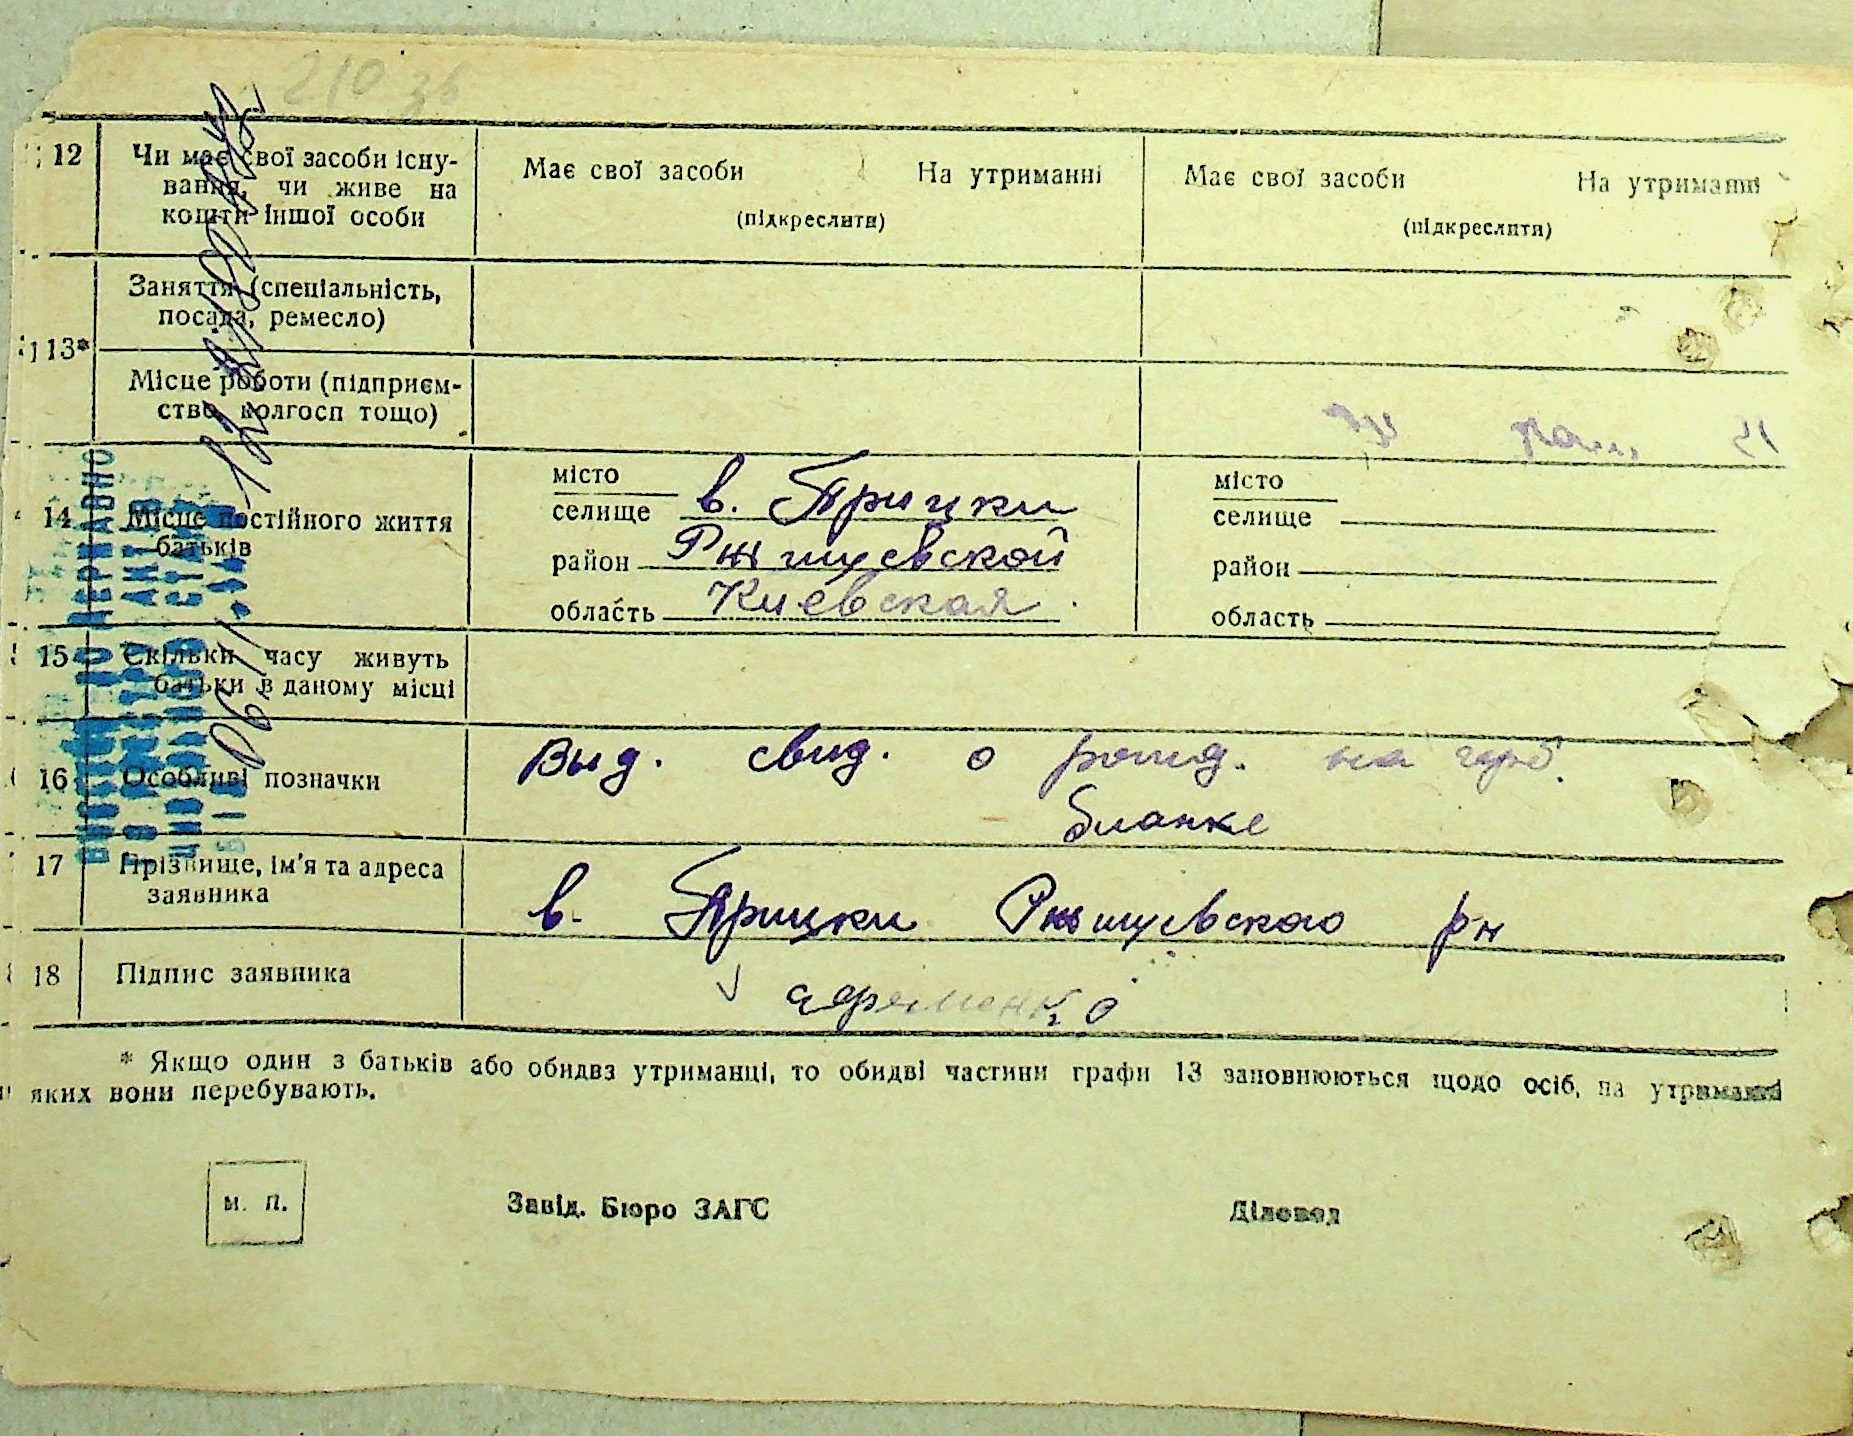 210 зв
12 Чи має свої засоби існу-
вання, чи живе на
кошти іншої особи
Має свої засоби На утриманні
(підкреслити)
Має свої засоби На утриманні
(підкреслити)
13*
Заняття (спеціальність,
посада, ремесло)
Місце роботи (підприєм-
ство, колгосп тощо)
14 Місце постійного життя
батьків
місто
селище в. Трицки
район Ржищевской
область Киевская
місто
селище
район
область
15 Скільки часу живуть
батьки в даному місці
16 Особливі позначки
Выд. свид. о рожд. на герб.
бланке
17 Прізвище, ім'я та адреса
заявника
в. Трицки Ржищевского рн
18 Підпис заявника
* Якщо один з батьків або обидва утриманці, то обидві частини графи 13 заповнюються щодо осіб, на утриманні
яких вони перебувають.
м. п.
Завід. Бюро ЗАГС
Діловод